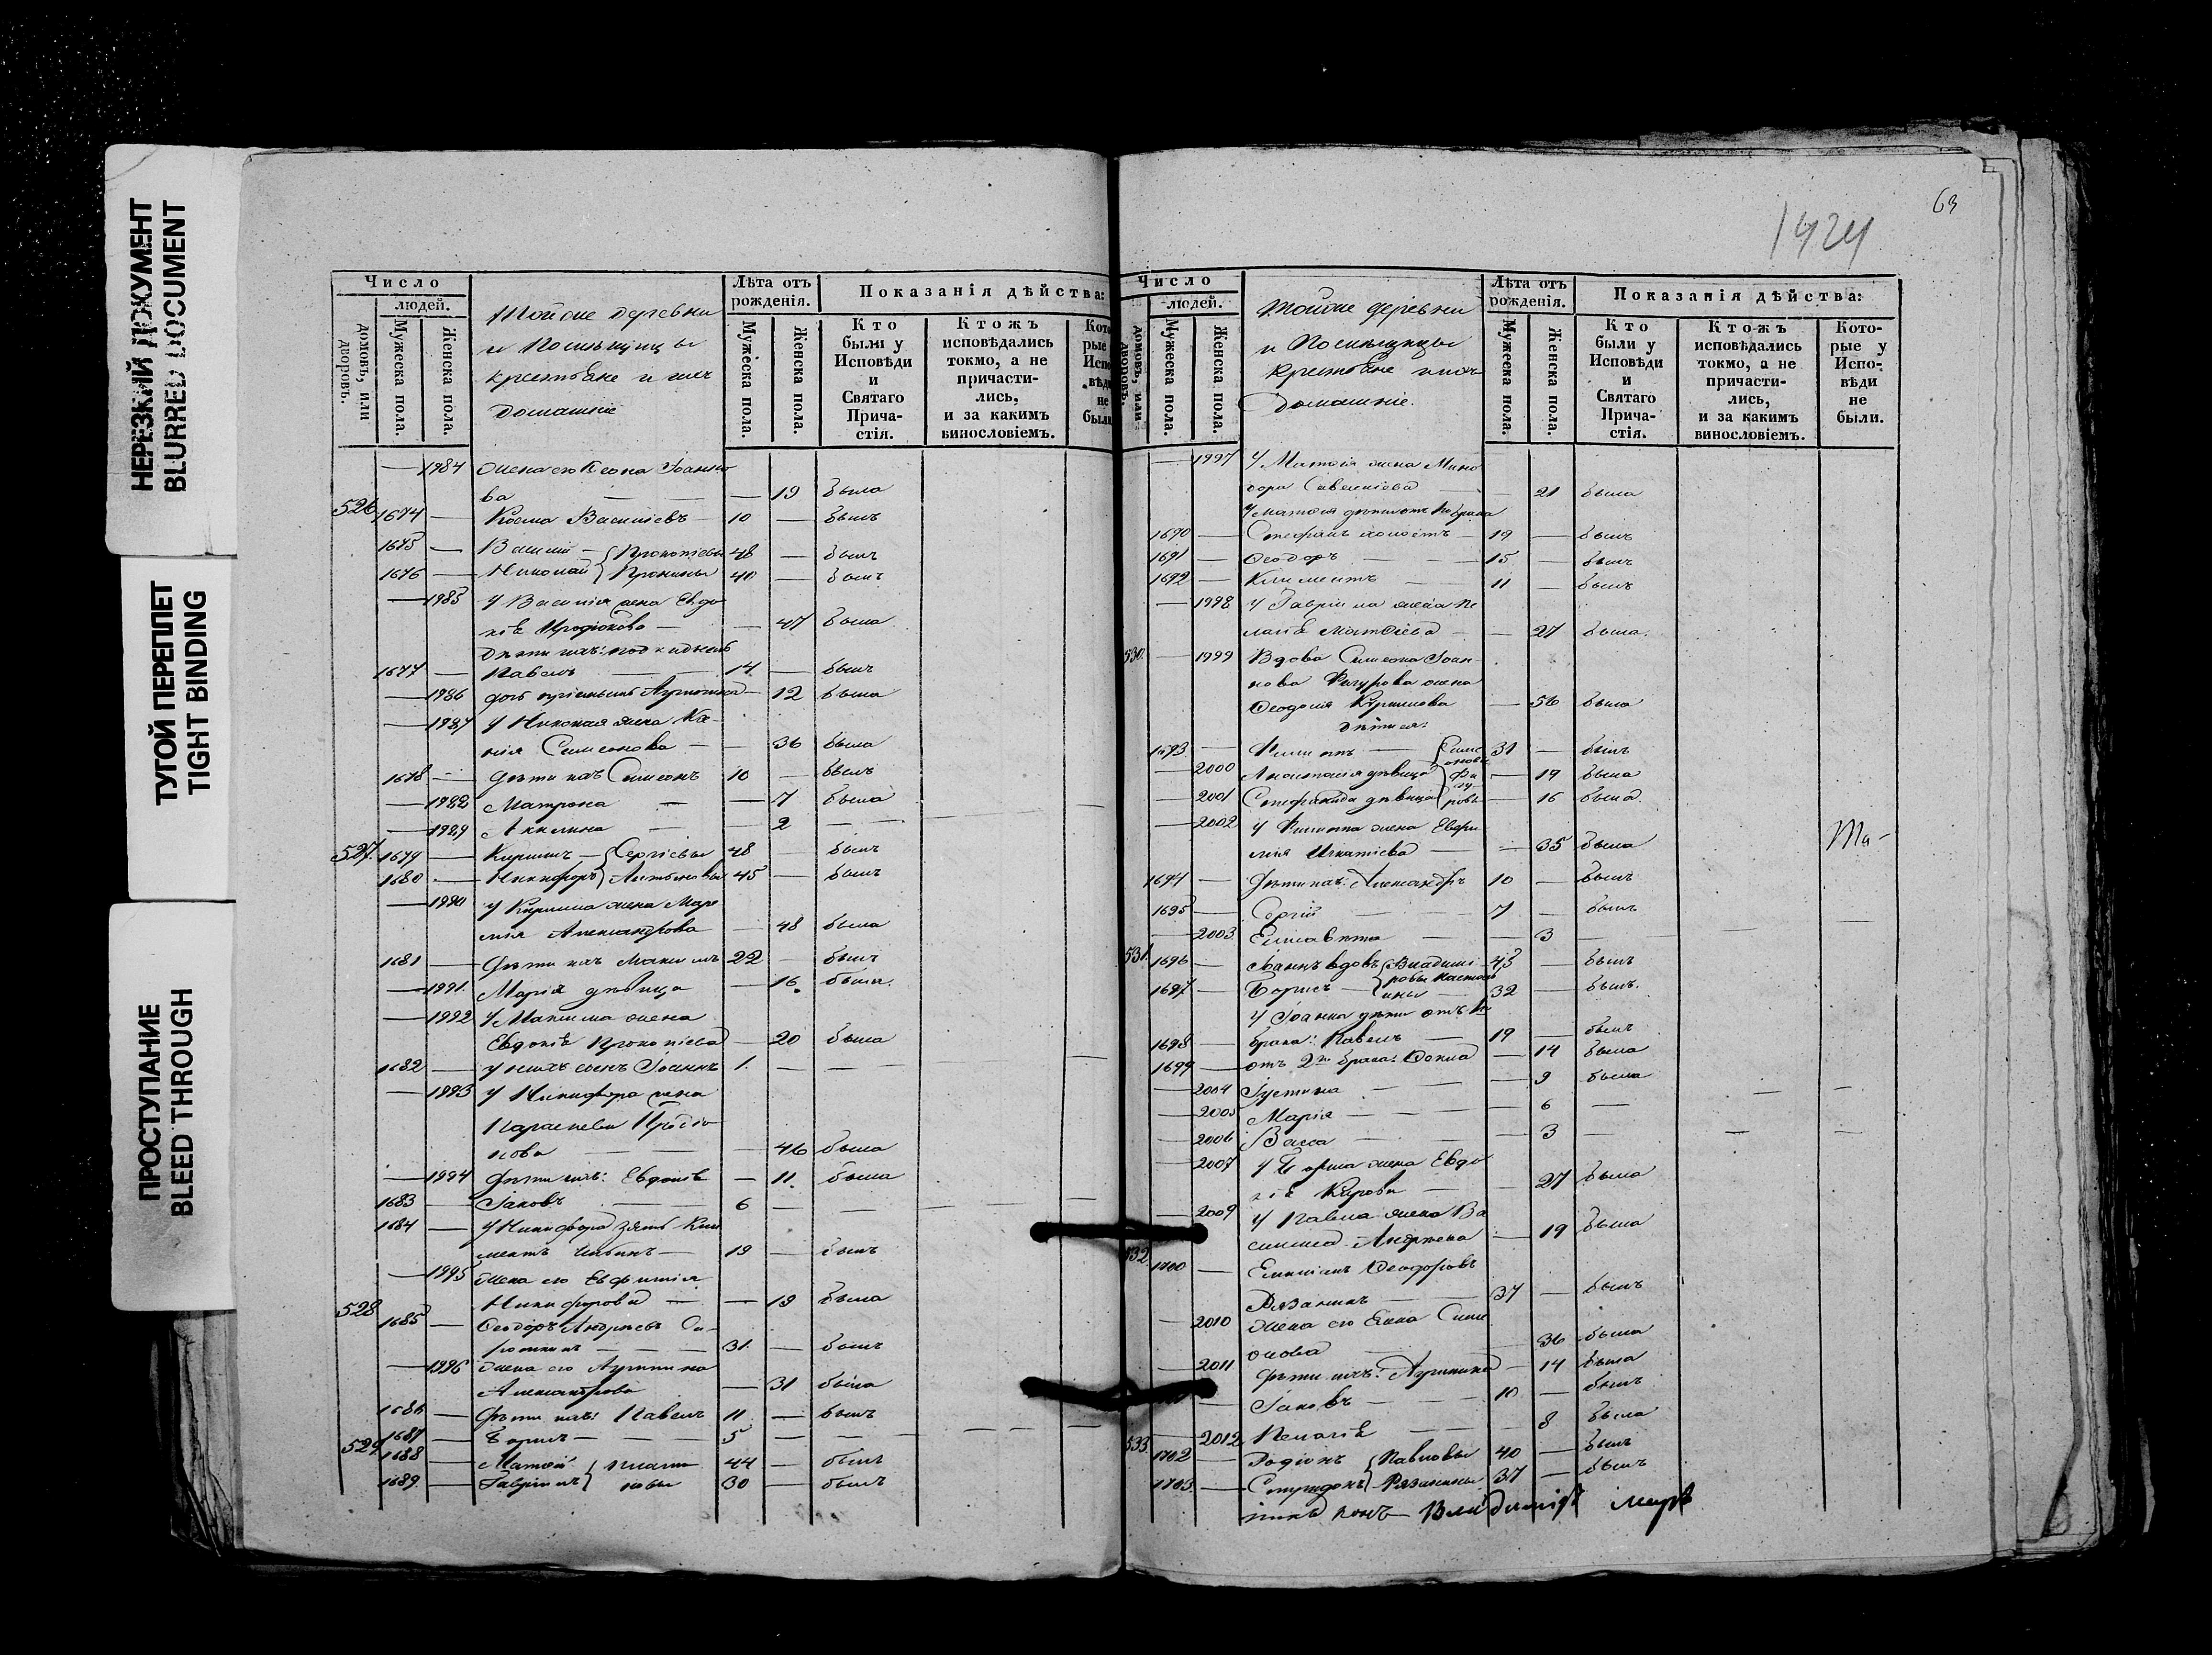 НЕРЕЗКИЙ ДОКУМЕНТ
BLURRED DOCUMENT
ТУГОЙ ПЕРЕПЛЕТ
TIGHT BINDING
ПРОСТУПАНИЕ
BLEED THROUGH
Число
людей.
домовъ, или дворовъ.
Мужеска пола.
Женска пола.
Тойже деревни
и Помѣщицы
крестьяне и ихъ
домашніе
Лѣта отъ рожденія.
Мужеска пола.
Женска пола.
Показанія дѣйства:
Кто были у Исповѣди и Святаго Прича-стія.
Ктожъ исповѣдались токмо, а не причасти-лись, и за какимъ винословіемъ.
1984 жена его Іоанно
ва — — — 19 была
526 1674 — Косма Василіевъ — 10 — былъ
1675 — Василій — Прокопіевы 48 — былъ
1676 — Николай 40 — былъ
— 1985 У Василія жена Евдо
кія — — 47 была
дѣти ихъ:
1677 — Павелъ — 14 — былъ
— 1986 — 12 была
— 1987 У Николая жена Ка-
Симеонова — — 36 была
1678 — дѣти ихъ Симеонъ 10 — былъ
— 1988 Матрона — — 7 была
— 1989 Акилина — — 2 — —
527. 1679 — Кириллъ — Сергіевы 48 былъ
1680 — Никифоръ 45 — былъ
— 1990 У Кирилла жена Мар
Александрова — 48 была
1681 — дѣти ихъ Максимъ 22 — былъ
— 1991. Марія дѣвица — 16. была.
— 1992 У Максима жена
Евдокія Прокопіева — 20 была
1682 — у нихъ сынъ Іоаннъ 1. — — —
— 1993 У Никифора жена
Параскева Иродіо
нова — — — 46 была
— 1994 дѣти ихъ: Евдокія — 11. была
1683 — Іаковъ — 6 — — —
1684 — У Никифора зять Кли
ментъ — 19 — былъ
— 1995 жена его Евфимія
Никифорова — — 19 была
528 1685 — Ѳеодоръ Андреевъ Си-
— — — 31 — былъ
— 1996 жена его Агриппина
Александрова — 31 была
1686 — дѣти ихъ: Павелъ 11 — былъ
1687 — Борисъ — — 5 — — —
529 1688 — Матѳій 44 — былъ
1689. — Гавріилъ 30 — былъ
63
1424
Число
людей.
домовъ, или дворовъ.
Мужеска пола.
Женска пола.
Тойже деревни
и Помѣщицы
крестьяне и ихъ
домашніе.
Лѣта отъ рожденія.
Мужеска пола.
Женска пола.
Показанія дѣйства:
Кто были у Исповѣди и Святаго Прича-стія.
Ктожъ исповѣдались токмо, а не причасти-лись, и за какимъ винословіемъ.
Кото-рые у Испо-вѣди не были.
— 1997 У Матѳія жена Мино
дора Савеліева — — 21 была
У Матѳія дѣти отъ брака
1690 — Стефанъ холостъ — 19 — былъ
1691 — Ѳеодоръ — — 15 — былъ
1692 — Климентъ — 11 — былъ
— 1998 У Гавріила жена Пе
лагія Матѳіева — — 27 была.
530. — 1999 Вдова Симеона Іоан-
нова жена
Ѳеодосія Кириллова — 56 была
дѣти ея:
1693 — Филиппъ — Симе 31 — былъ
— 2000 Анастасія дѣвица оновы — 19 была
— 2001 Стефанида дѣвица — 16 была.
— 2002 У Филиппа жена Евфи
мія Игнатіева — — 35 была
1694 — дѣти ихъ: Александръ 10 — былъ
1695 — Сергій — — 7 — былъ
— 2003 Елисавета — — 3 —
531. 1696 — Іоаннъ вдовъ Владимі- 43 — былъ
1697 — Борисъ — ровы 32 — былъ.
У Іоанна дѣти отъ
1698 — брака: Павелъ — 19 — былъ
1699 — отъ 2го брака: — 14 была
— 2004 Іустина — — 9 была
— 2005 Марія — — — 6 —
— 2006 Васса — — — 3 — — —
— 2007 У Бориса жена Евдо
кія — 27 была
— 2009 У Павла жена Ва
силиса Андреева — 19 была
532 1700 — Емиліанъ Ѳеодоровъ
Рязанинъ — 37 — былъ
— 2010 жена его Елена Симе
онова 36 была
— 2011 дѣти ихъ: Агриппина — 14 была
— Іаковъ — — 10 — былъ
— 2012 Пелагія — — 8 была
533. 1702 — Родіонъ Павловы 40 — былъ
1703. — Спиридонъ Рязанины 37 — былъ